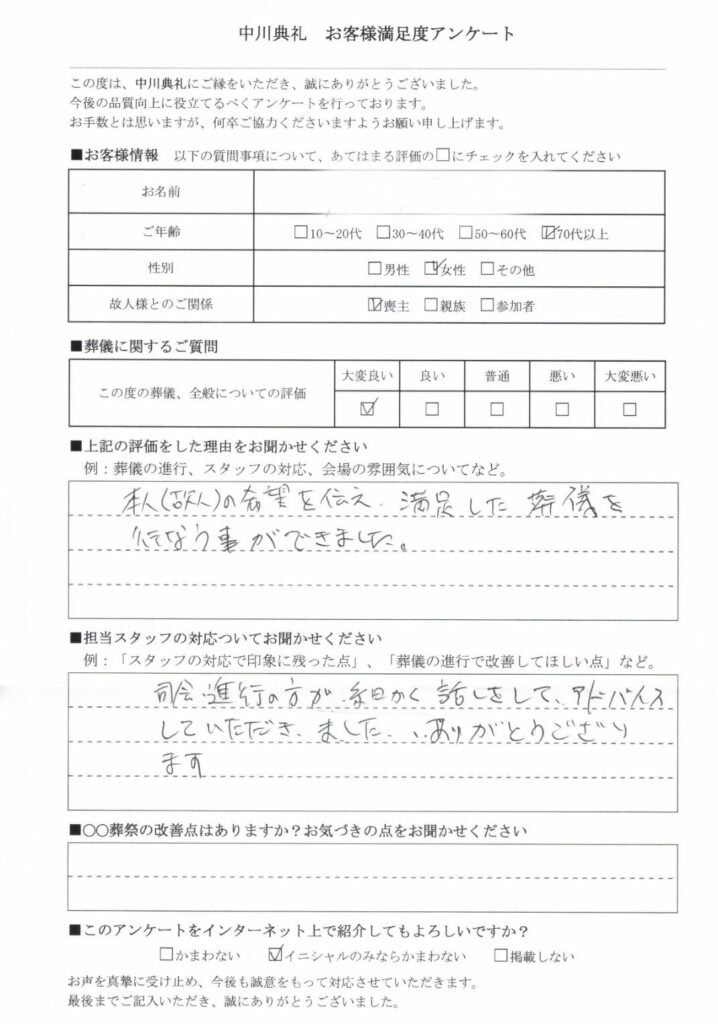 中川典礼　お客様満足度アンケート
この度は、中川典礼にご縁をいただき、誠にありがとうございました。
今後の品質向上に役立てるべくアンケートを行っております。
お手数とは思いますが、何卒ご協力くださいますようお願い申し上げます。
■お客様情報　以下の質問事項について、あてはまる評価の□にチェックを入れてください
お名前
ご年齢　□10～20代　□30～40代　□50～60代　☑70代以上
性別　□男性　☑女性　□その他
故人様とのご関係　☑喪主　□親族　□参加者
■葬儀に関するご質問
大変良い　良い　普通　悪い　大変悪い
この度の葬儀、全般についての評価　☑　□　□　□　□
■上記の評価をした理由をお聞かせください
例：葬儀の進行、スタッフの対応、会場の雰囲気についてなど。
本人(故人)の希望を伝え、満足した葬儀を
行なう事ができました。
■担当スタッフの対応ついてお聞かせください
例：「スタッフの対応で印象に残った点」、「葬儀の進行で改善してほしい点」など。
司会進行の方が、細かく話しをして、アドバイス
していただき、ました、、ありがとうござい
ます
■〇〇葬祭の改善点はありますか？お気づきの点をお聞かせください
■このアンケートをインターネット上で紹介してもよろしいですか？
□かまわない　☑イニシャルのみならかまわない　□掲載しない
お声を真摯に受け止め、今後も誠意をもって対応させていただきます。
最後までご記入いただき、誠にありがとうございました。